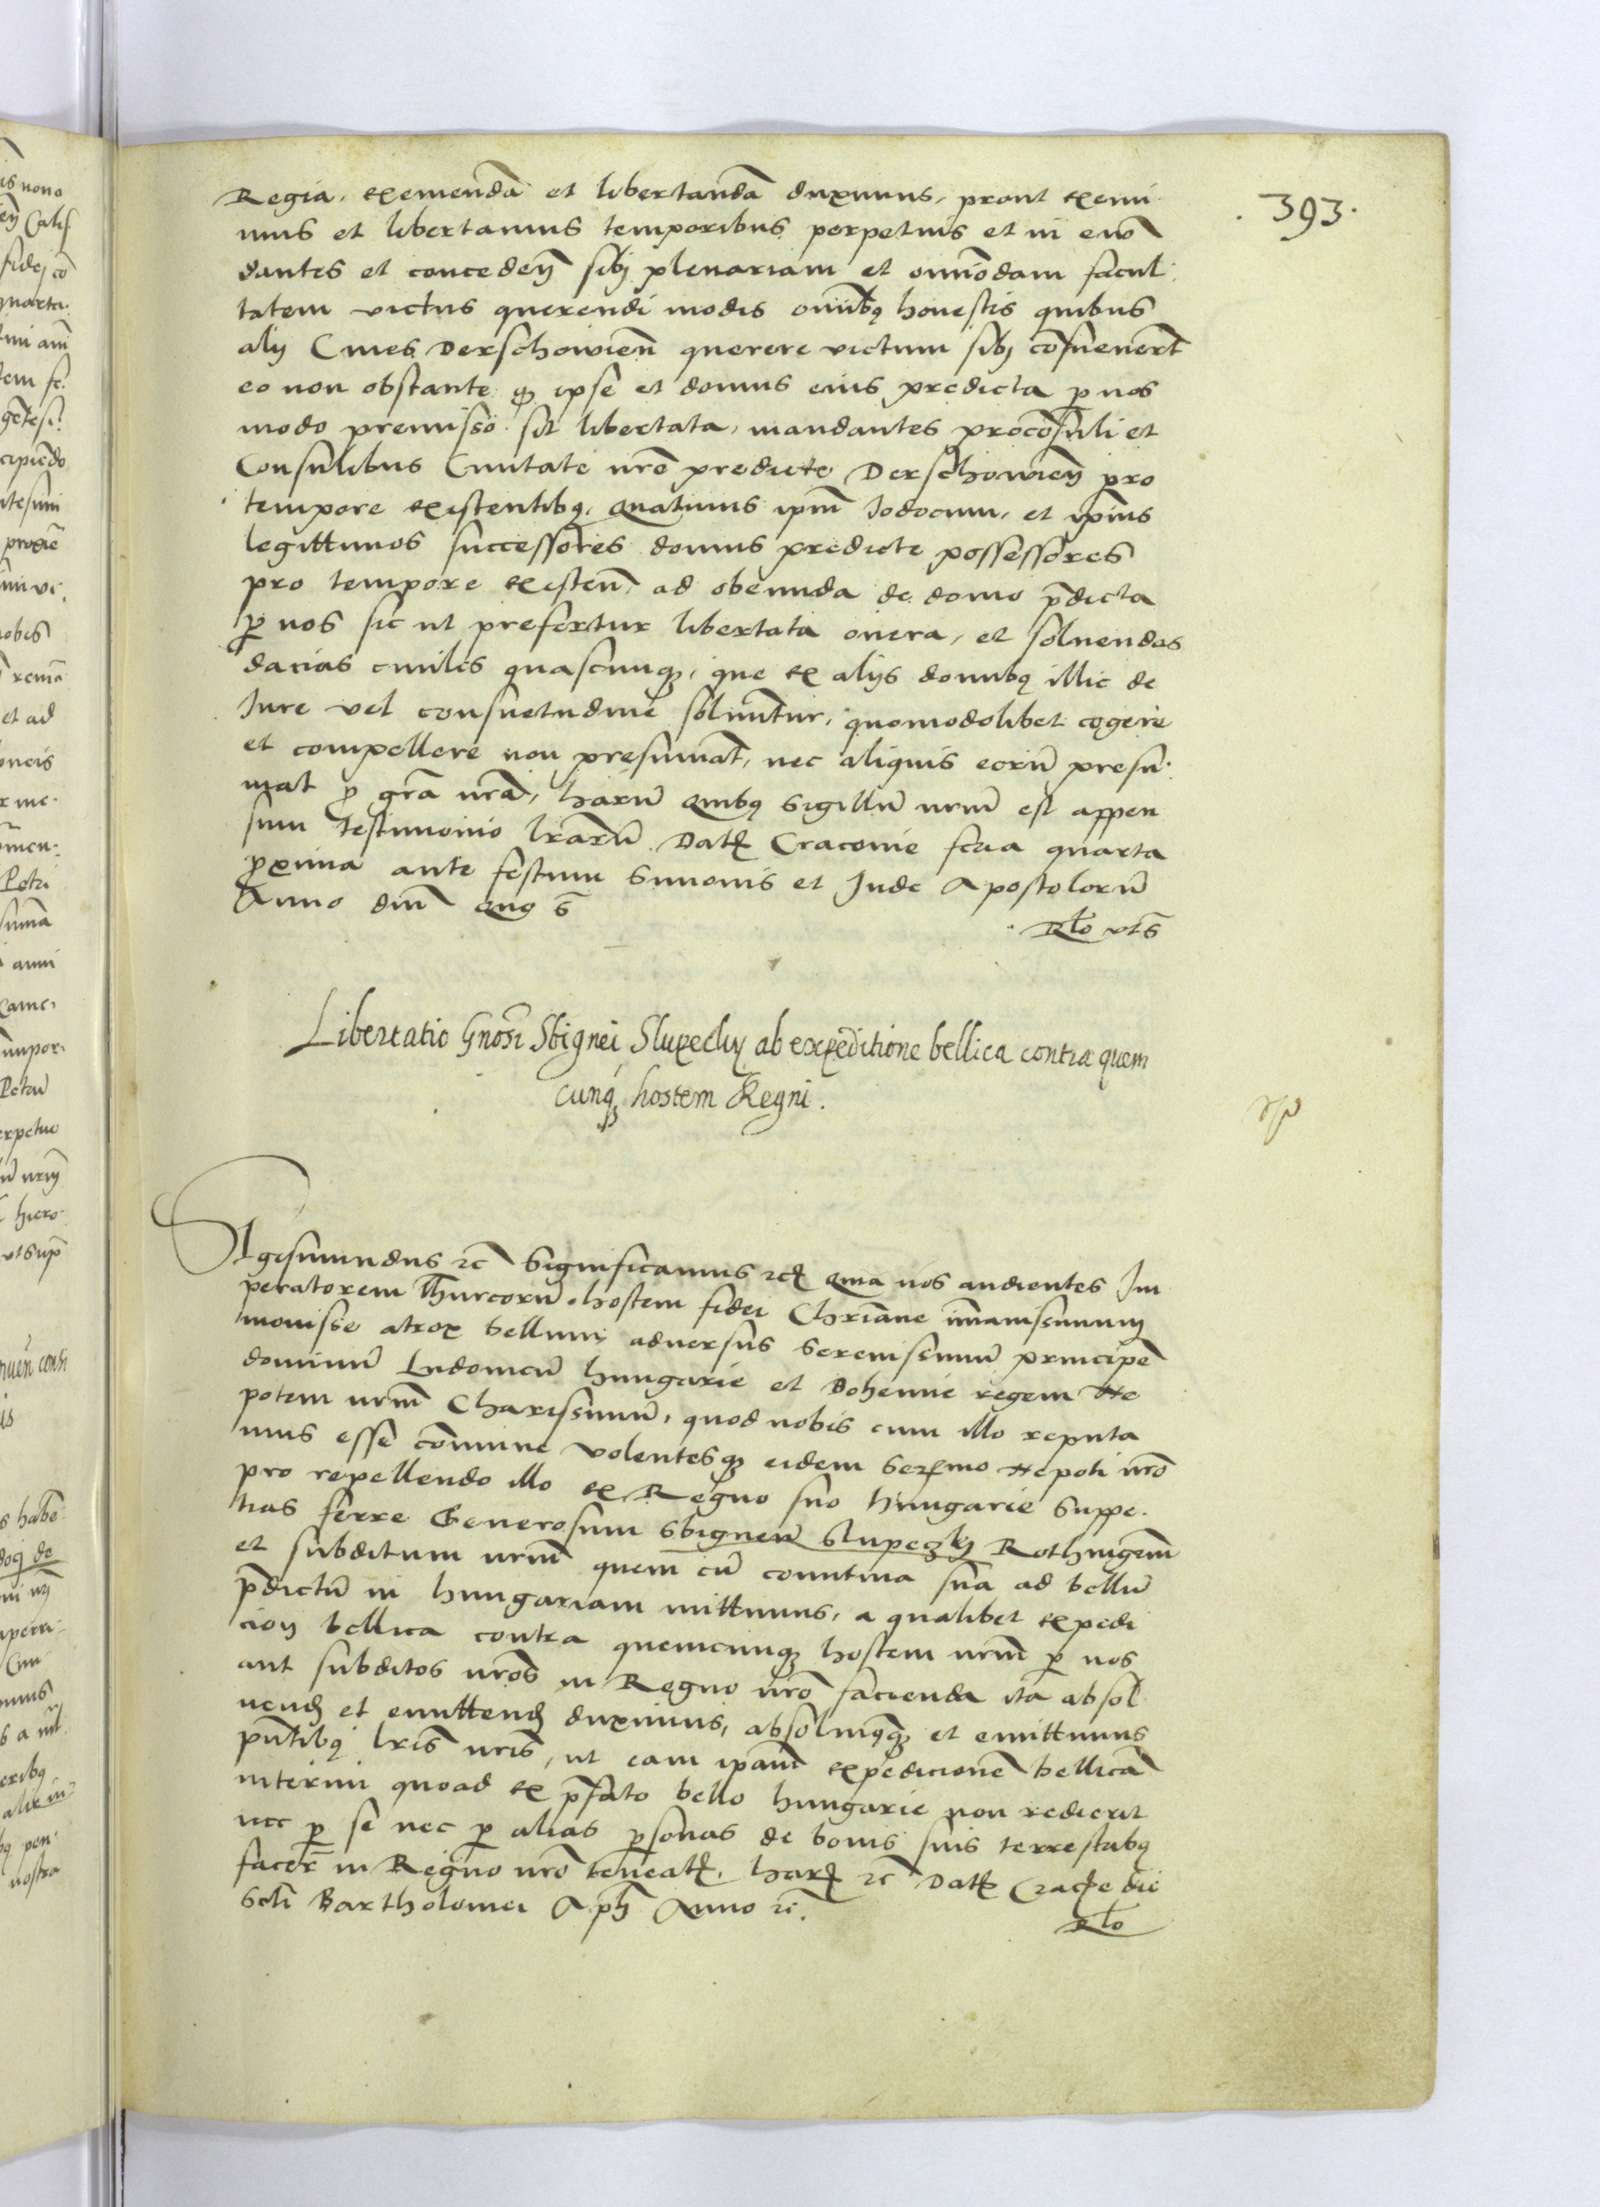 393.
Regia, exemendā et libertandā duximus, prout exemi
mus et libertamus temporibus perpetuis et in ewō
dantes et conceden̄ sibj plenariam et omn̄odam facul
tatem victus querendi modis omībꝫ honestis quibus
alij Ciues Derschowien̄ querere victum sibj cōsueuer̄t
eo non obstante qꝫ ipse et domus eius predicta ꝑ nos
modo premisso sit libertata, mandantes procōsuli et
Consulibus Ciuitatē nr̄e predicte Derschowien̄ pro
tempore existentibꝫ, quatinus ipm̄ Jodocum, et ipsius
legittimos successores domus predicte possessores
pro tempore existen̄ ad obeunda de domo p̄dicta
ꝑ nos sic ut prefertur libertata onera, et soluendas
dacias ciuiles quascunqꝫ, que ex alijs domibꝫ illic de
Jure vel consuetudine soluūtur, quomodolibet cogere
et compellere non presumāt, nec aliquis eorū presu
mat ꝓ gr̄a nrā, harū quibꝫ Sigillū nrūm est appen
sum testimonio lrārū. Datꝫ Cracouie feria quarta
ꝓxima ante festum Simonis et Jude Apostolorū
Anno dnī quo s̄
Rlō vts̄
Libertatio Gnosī Sbignei Slupeckij ab expeditione bellica contra quem
cunqꝫ hostem Regni.
Sigismundus ꝛc̄ Significamus ꝛcꝫ Quia nos audientes Im
peratorem Thurcorū hostem fidei Chrīane im̄anissimum
mouisse atrox bellum aduersus Serenissimū principē
dominū Ludouicū Hungarie et Bohemie regem Ne
potem nrm̄ Charissimū, quod nobis cum illo reputa
mus esse com̄une volentesqꝫ eidem Serm̄o Nepoti nrō
pro repellendo illo ex Regno suo Hungarie Suppe
tias ferre Generosum Sbigneū Slupeczkj Rothmgrm̄
et subditum nrm̄ quem cū comitiua sua ad bellū
p̄dictū in Hungariam mittimus, a qualibet expedi
cion̄ bellica contra quemcunqꝫ hostem nrm̄ ꝑ nos
aut subditos nrōs in Regno nrō facienda ita absol
uend̄ et emittend̄ duximus, absoluimꝰqꝫ et emittimus
pn̄tibꝫ lrīs nrīs, ut eam ipam̄ expedicionē bellicā
interim quoad ex p̄fato bello Hungarie non redierit
nec ꝑ se nec ꝑ alias ꝑsonas de bonis suis terrestribꝫ
facer̄ in Regno nrō teneatꝫ. Harꝫ ꝛc̄ Datꝫ Cracoīe die
Sctī Bartholomei Apl̄i Anno ꝛc̄.
Rlō